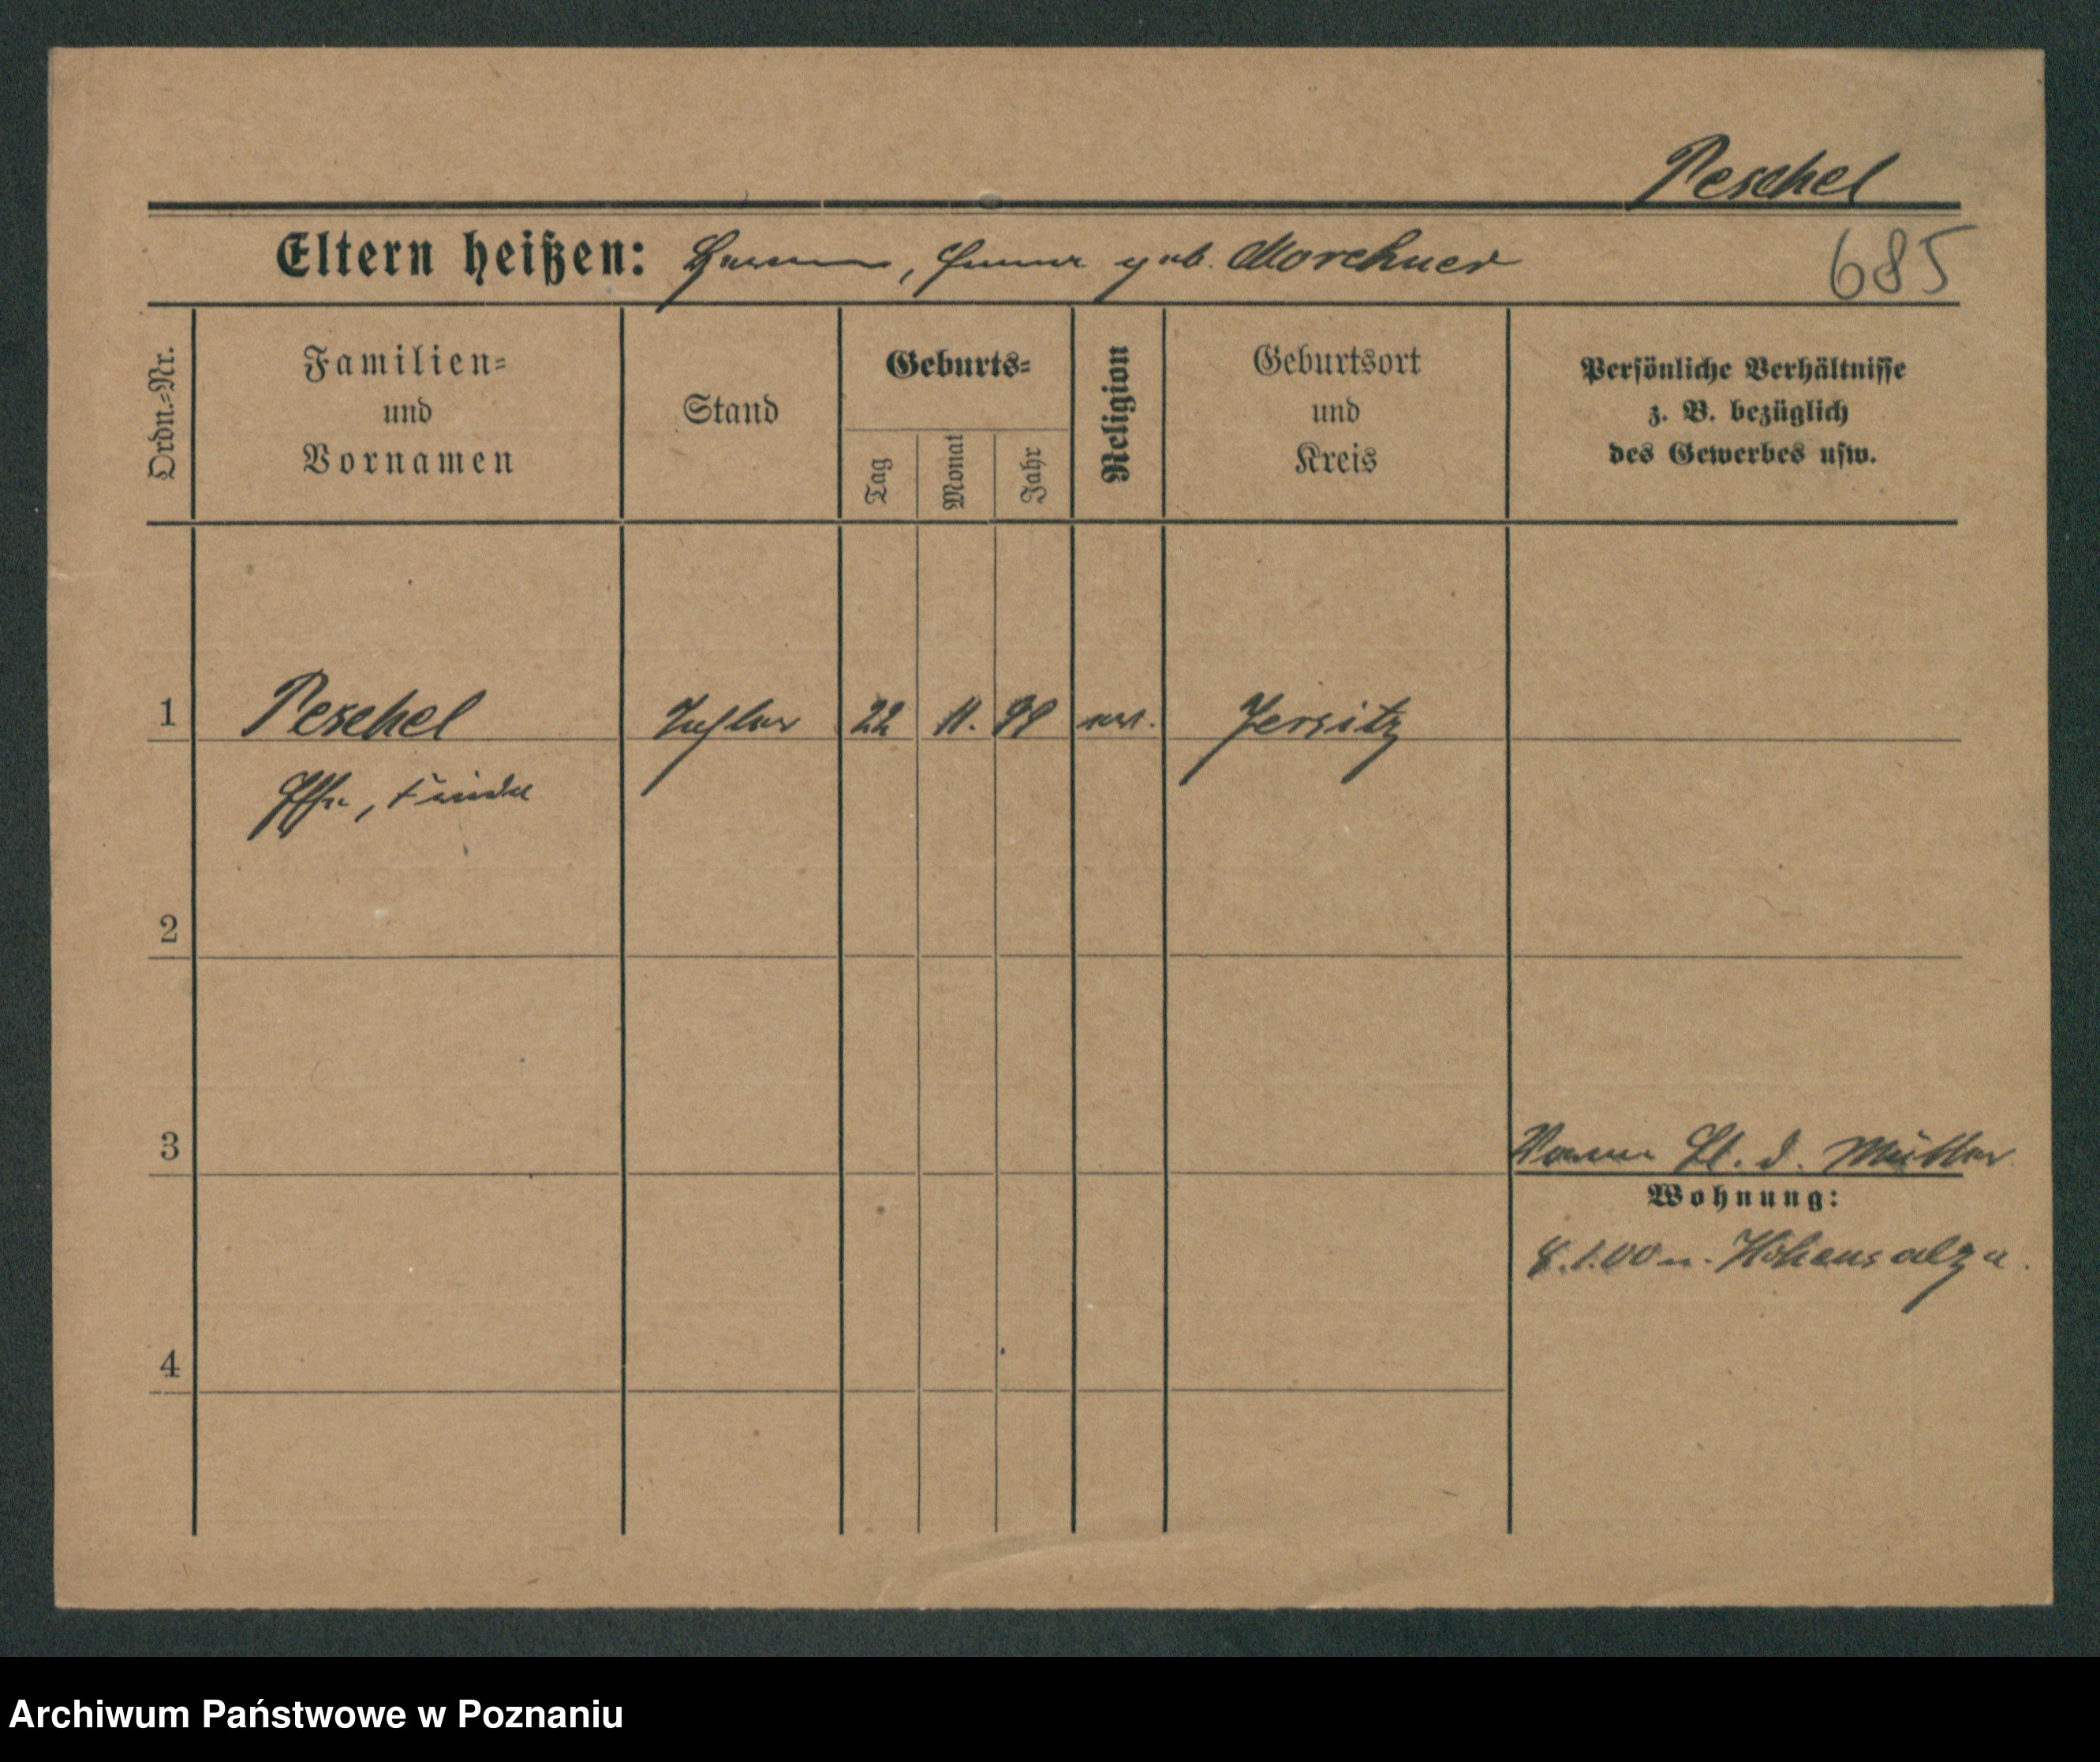 Peschel
Eltern heißen: Hermann, Emma geb. Morchner
685
Ordn.-Nr.
Familien=
und
Vornamen
Stand
Geburts=
Tag
Monat
Jahr
Religion
Geburtsort
und
Kreis
Persönliche Verhältnisse
z. B. bezüglich
des Gewerbes usw.
1 Peschel Tochter 22 11. 98 ev. Jersitz
2
3
Müller
Wohnung:
8.1.00 n. Hohensalza.
4
Archiwum Państwowe w Poznaniu